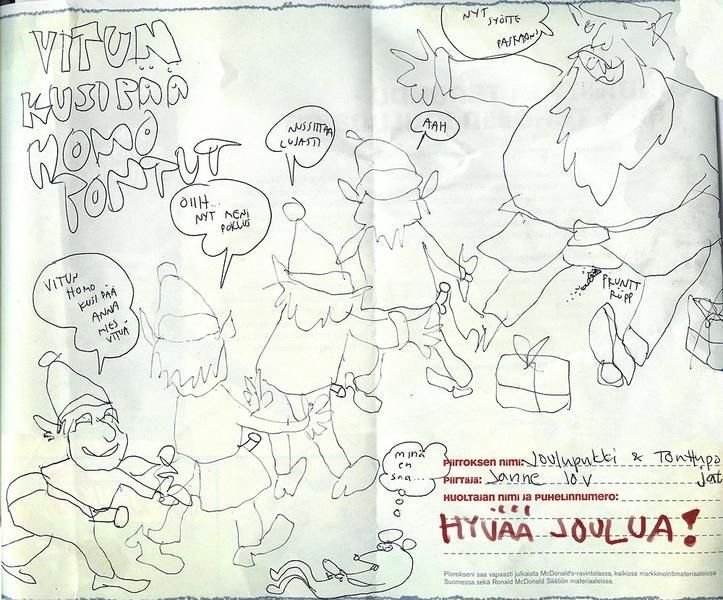 VITUN
KUSIPÄÄ
HOMO
TONTUT
NYT
SYÖTTE
PASKAANI
AAH
NUSSITTAA
LUJASTI
OIIH...
NYT MENI
POKSUS
VITUN
HOMO
KUSIPÄÄ
ANNA
MIES
VITUA
PRUNTT
RÖPP
minä
en
saa...
Piirroksen nimi: Joulupukki & Tonttupo
jat
Piirtäjä: Janne 10 v
Huoltajan nimi ja puhelinnumero:
HYVÄÄ JOULUA!
Piirrokseni saa vapaasti julkaista McDonald's-ravintolassa, kaikissa markkinointimateriaaleissa
Suomessa sekä Ronald McDonald Säätiön materiaaleissa.